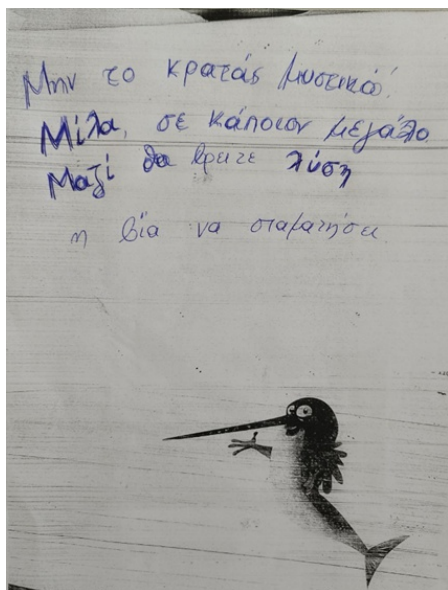 Μην το κρατάς μυστικό!
Μίλα, σε κάποιον μεγάλο.
Μαζί θα βρητε λύση
η βία να σταματήσει